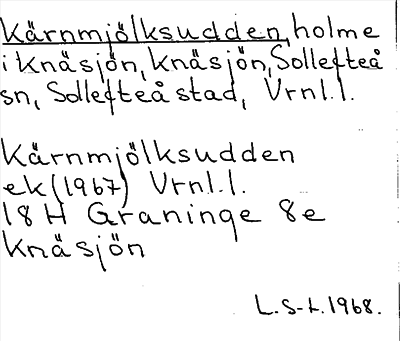 Kärnmjölksudden, holme
i Knäsjön, Knäsjön, Sollefteå
sn, Sollefteå stad, Vrnl.l.
Kärnmjölksudden
ek(1967) Vrnl.l.
18 H Graninge 8e
Knäsjön
L.S-t.1968.